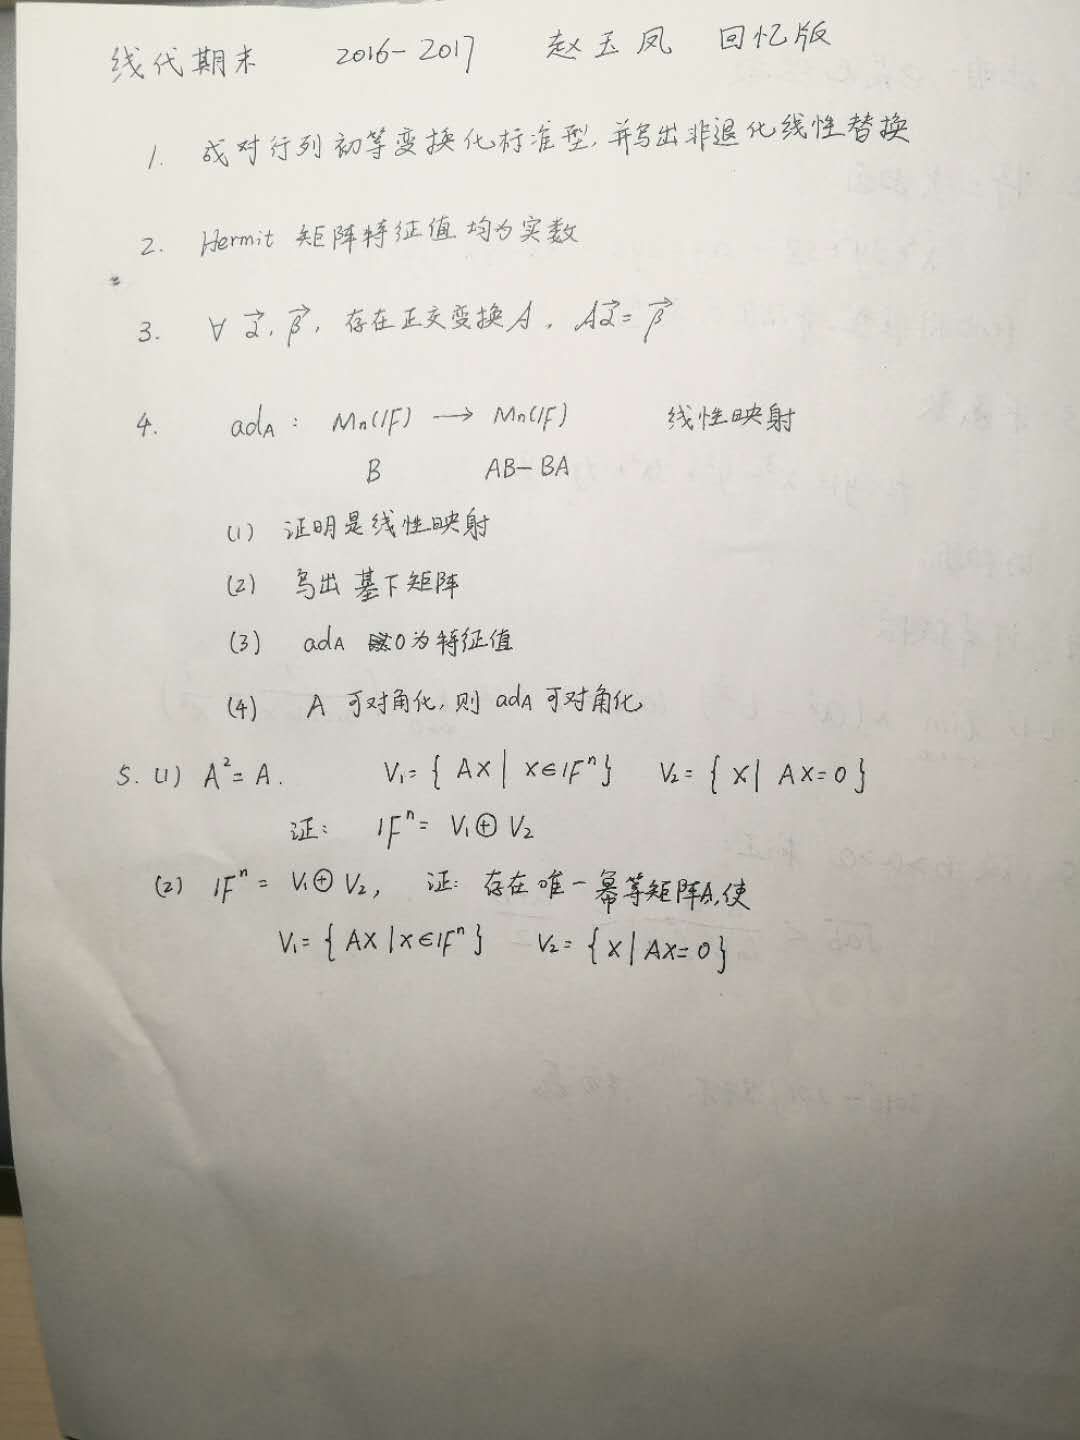 线代期末 2016-2017 赵玉凤 回忆版
1. 成对行列初等变换化标准型,并写出非退化线性替换
2. Hermit 矩阵特征值均为实数
3. ∀ α⃗, β⃗, 存在正交变换A, Aα⃗ = β⃗
4. adA : Mn(IF) → Mn(IF) 线性映射
B AB-BA
(1) 证明是线性映射
(2) 写出基下矩阵
(3) adA 0为特征值
(4) A 可对角化,则 adA 可对角化
5. (1) A²=A. V₁={ AX | X∈IFⁿ} V₂={ X | AX=0 }
证: IFⁿ= V₁⊕V₂
(2) IFⁿ = V₁⊕V₂, 证: 存在唯一幂等矩阵A,使
V₁={AX|X∈IFⁿ} V₂={X|AX=0}